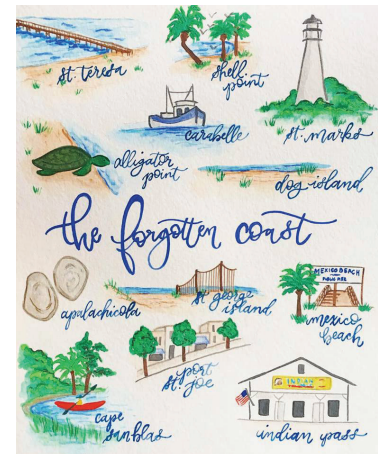 st. teresa
shell
point
carabelle
st. marks
alligator
point
dog island
the forgotten coast
apalachicola
st george
island
MEXICO BEACH
PUBLIC PIER
mexico
beach
port
st. joe
cape
sanblas
INDIAN
indian pass